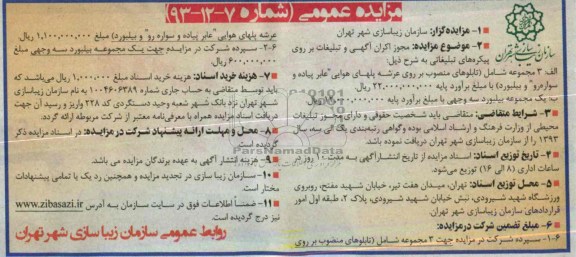 مزایده عمومی (شماره ۷-۱۲-۹۳)
سازمان زیباسازی شهر تهران
۱- مزایده‌گزار: سازمان زیباسازی شهر تهران
۲- موضوع مزایده: مجوز اکران آگهی و تبلیغات بر روی
پیکره‌های تبلیغاتی به شرح ذیل:
الف ۳ مجموعه شامل (تابلوهای منصوب بر روی عرشه پلهای هوایی"عابر پیاده و
سواره‌رو" و بیلبورد) با مبلغ برآورد پایه ۲۲,۰۰۰,۰۰۰,۰۰۰ ریال
ب- یک مجموعه بیلبورد سه وجهی با مبلغ برآورد پایه
۳- شرایط متقاضی: متقاضی باید شخصیت حقوقی و دارای مجوز تبلیغات
محیطی از وزارت فرهنگ و ارشاد اسلامی بوده و گواهی رتبه‌بندی یک الی سه، سال
۱۳۹۳ را از سازمان زیباسازی شهر تهران دریافت نموده باشد.
۴- تاریخ توزیع اسناد: اسناد مزایده از تاریخ انتشار آگهی به مدت ۱۰ روز در
ساعات اداری (۸ الی ۱۶) توزیع می‌شود.
۵- محل توزیع اسناد: تهران، میدان هفت تیر، خیابان شهید مفتح، روبروی
ورزشگاه شهید شیرودی، نبش خیابان شهید شیرودی، پلاک ۲، طبقه اول امور
قراردادهای سازمان زیباسازی شهر تهران.
۶- مبلغ تضمین شرکت درمزایده:
۱-۶- سپرده شرکت در مزایده جهت ۳ مجموعه شامل (تابلوهای منصوب بر روی
عرشه پلهای هوایی" عابر پیاده و سواره رو" و بیلبورد) مبلغ ۱,۱۰۰,۰۰۰,۰۰۰ ریال
۲-۶- سپرده شرکت در مزایده جهت یک مجموعه بیلبورد سه وجهی مبلغ
۶۰۰,۰۰۰,۰۰۰ ریال.
۷- هزینه خرید اسناد: هزینه خرید اسناد مبلغ ۱,۰۰۰,۰۰۰ ریال می‌باشند که
باید توسط متقاضی به حساب جاری شماره ۱۰۰۴۶۰۶۳۸۹ به نام سازمان زیباسازی
شهر تهران نزد بانک شهر شعبه وحید دستگردی کد ۲۲۸ واریز و رسید آن جهت
دریافت اسناد مزایده همراه با معرفی‌نامه معتبر از شرکت مربوطه ارائه گردد.
۸- محل و مهلت ارائه پیشنهاد شرکت در مزایده: در اسناد مزایده ذکر
گردیده است.
۹- هزینه انتشار آگهی به عهده برندگان مزایده می باشد.
۱۰- سازمان زیبا سازی در تجدید مزایده و همچنین رد یک یا تمامی پیشنهادات
مختار است.
۱۱- ضمناً اطلاعات فوق در سایت سازمان به آدرس www.zibasazi.ir
نیز درج گردیده است.
روابط عمومی سازمان زیبا سازی شهر تهران
ParsNamadData